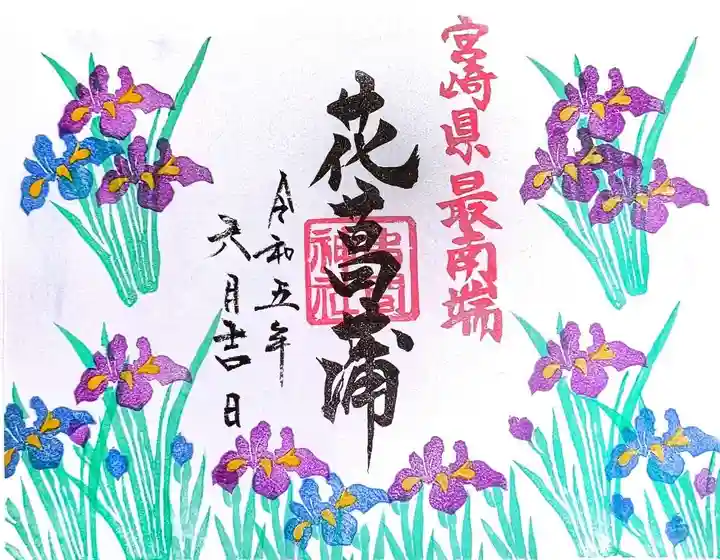 宮崎県最南端
花菖蒲
串間
神社
令和五年
六月吉日